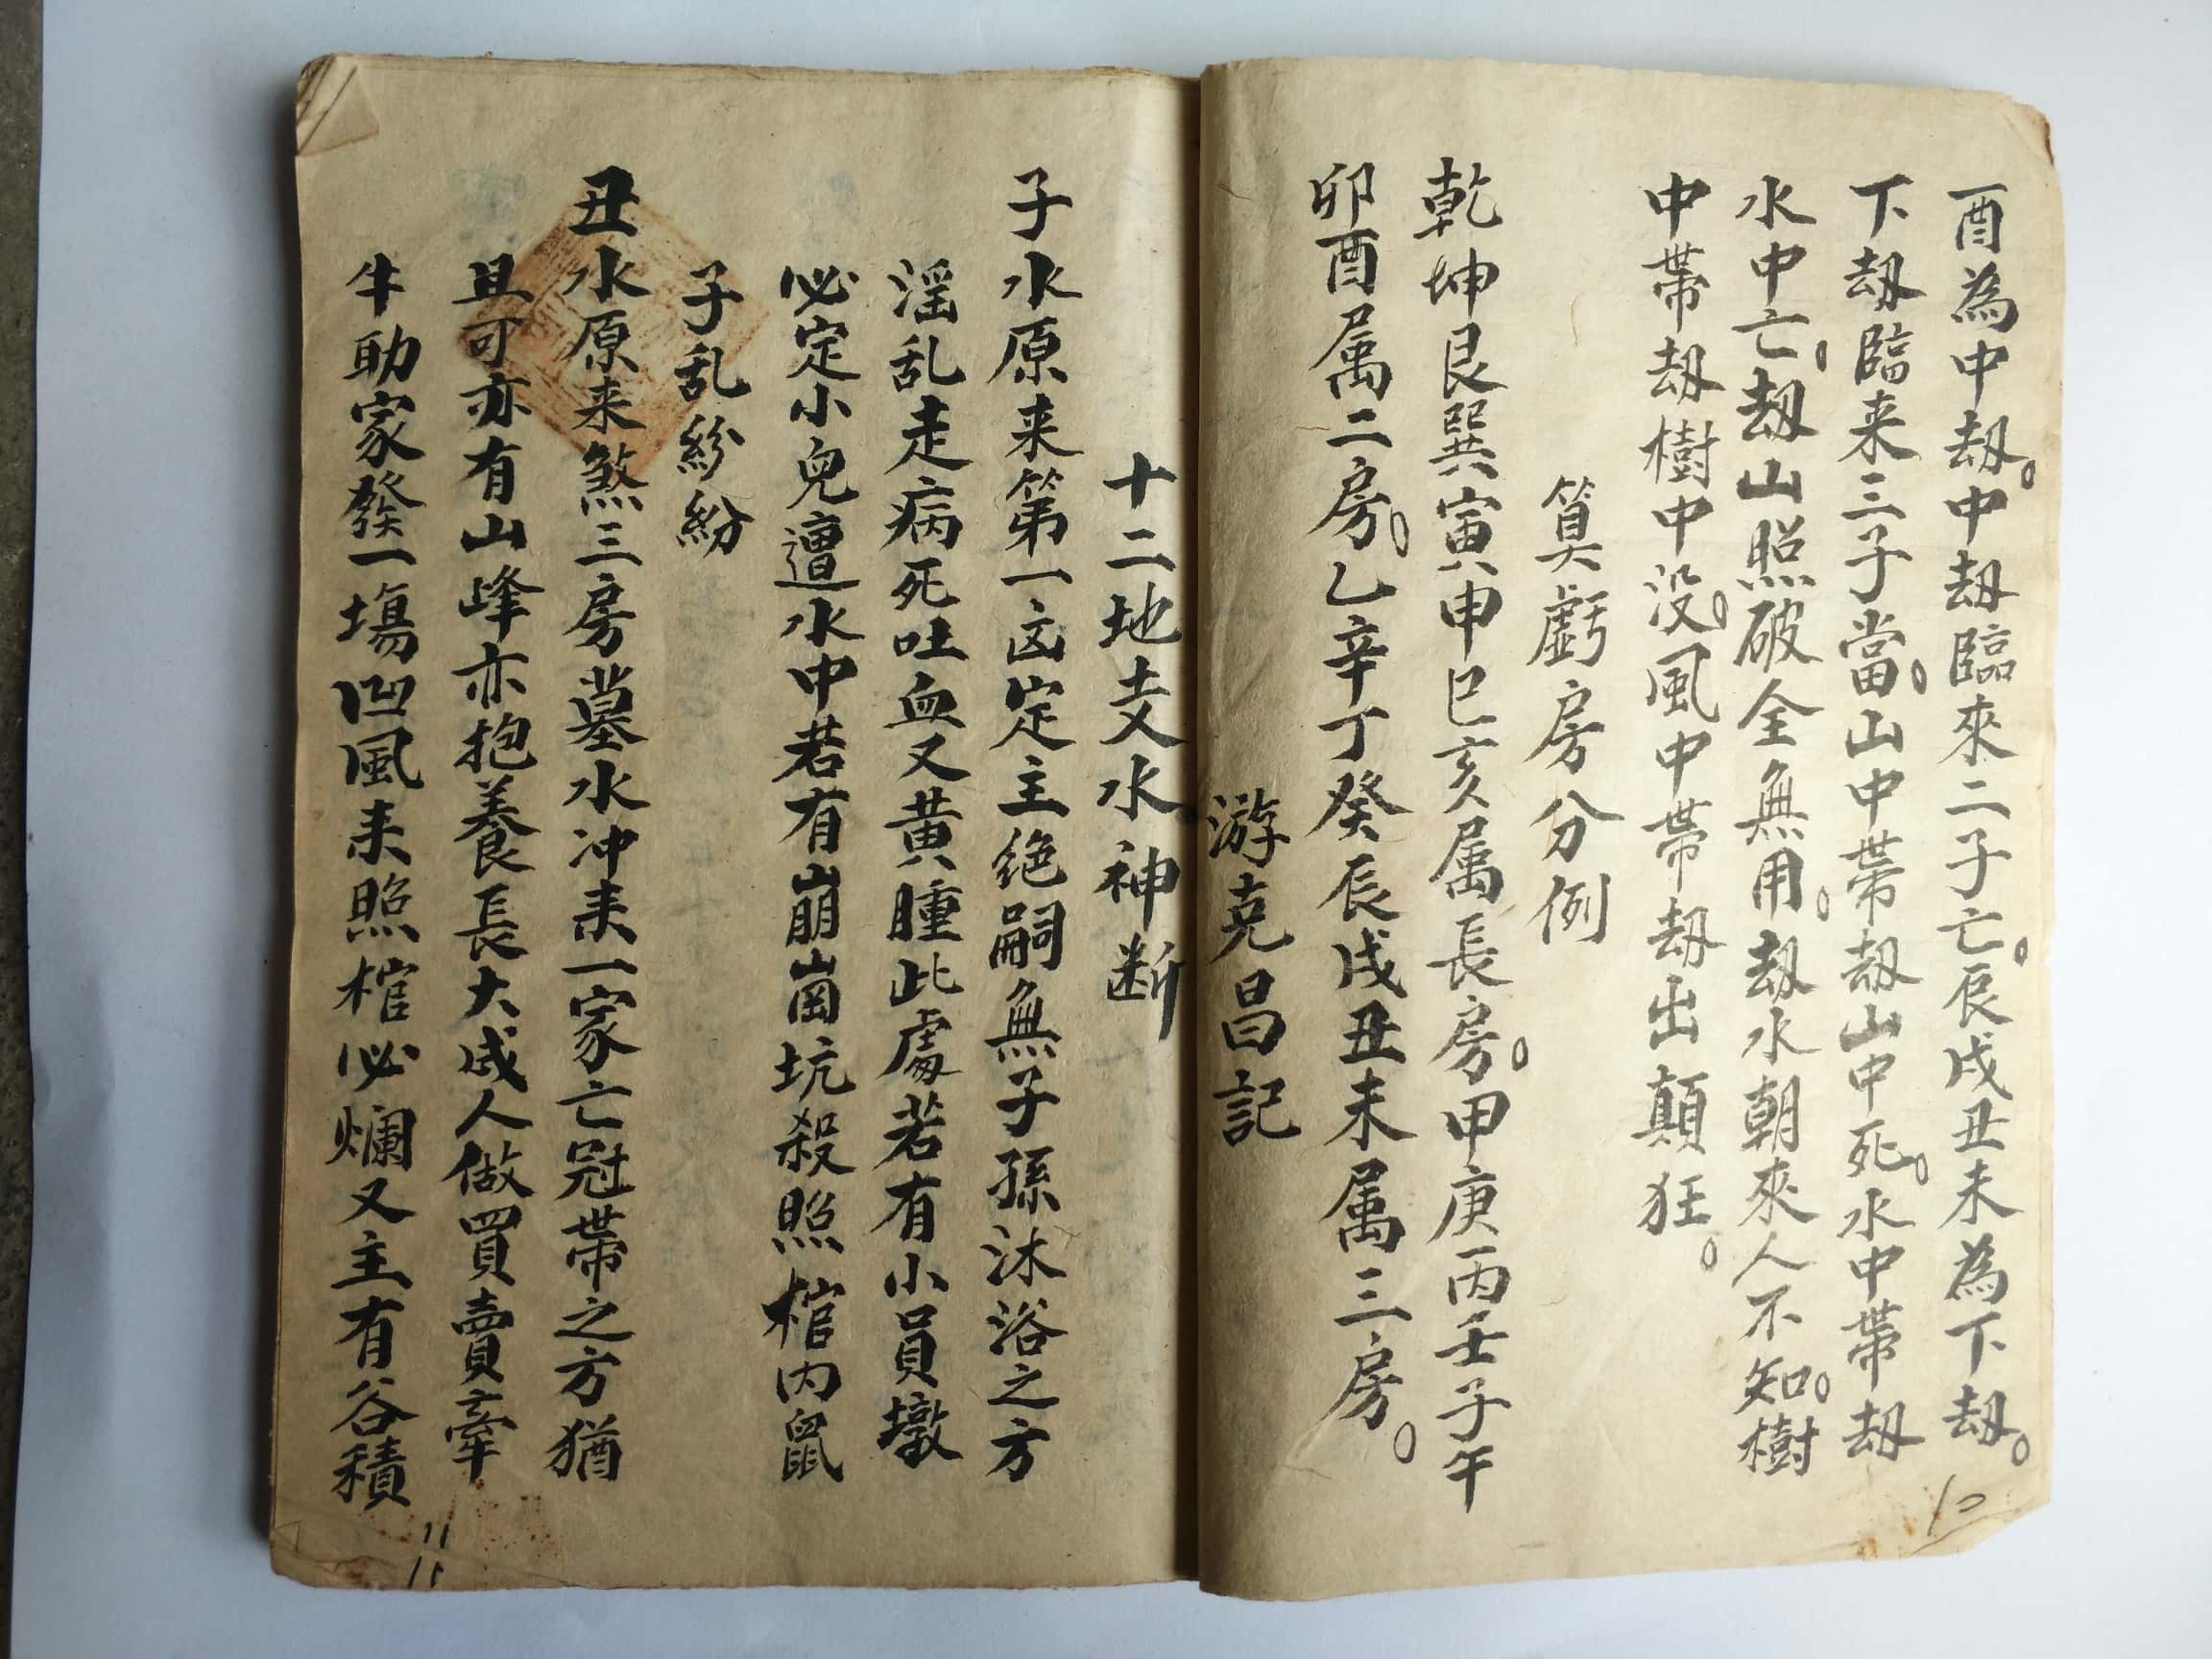 酉為中刼。中刼臨來二子亡。辰戌丑未為下刼。
下刼臨来三子當。山中帶刼山中死。水中帶刼
水中亡。刼山照破全無用。刼水朝來人不知。樹
中帶刼樹中没。風中帶刼出顛狂。
算虧房分例
乾坤艮巽寅申巳亥属長房。甲庚丙壬子午
卯酉属二房。乙辛丁癸辰戌丑未属三房。
游克昌記
十二地支水神断
子水原来第一凶定主绝嗣無子孫沐浴之方
淫乱走病死吐血又黄腫此處若有小員墩
必定小兒遭水中若有崩崗坑殺照棺内鼠
子乱紛紛
丑水原来煞三房墓水冲来一家亡冠帶之方猶
且可亦有山峰亦抱養長大成人做買賣牽
牛助家發一塲凹風来照棺必爛又主有谷積
11
11